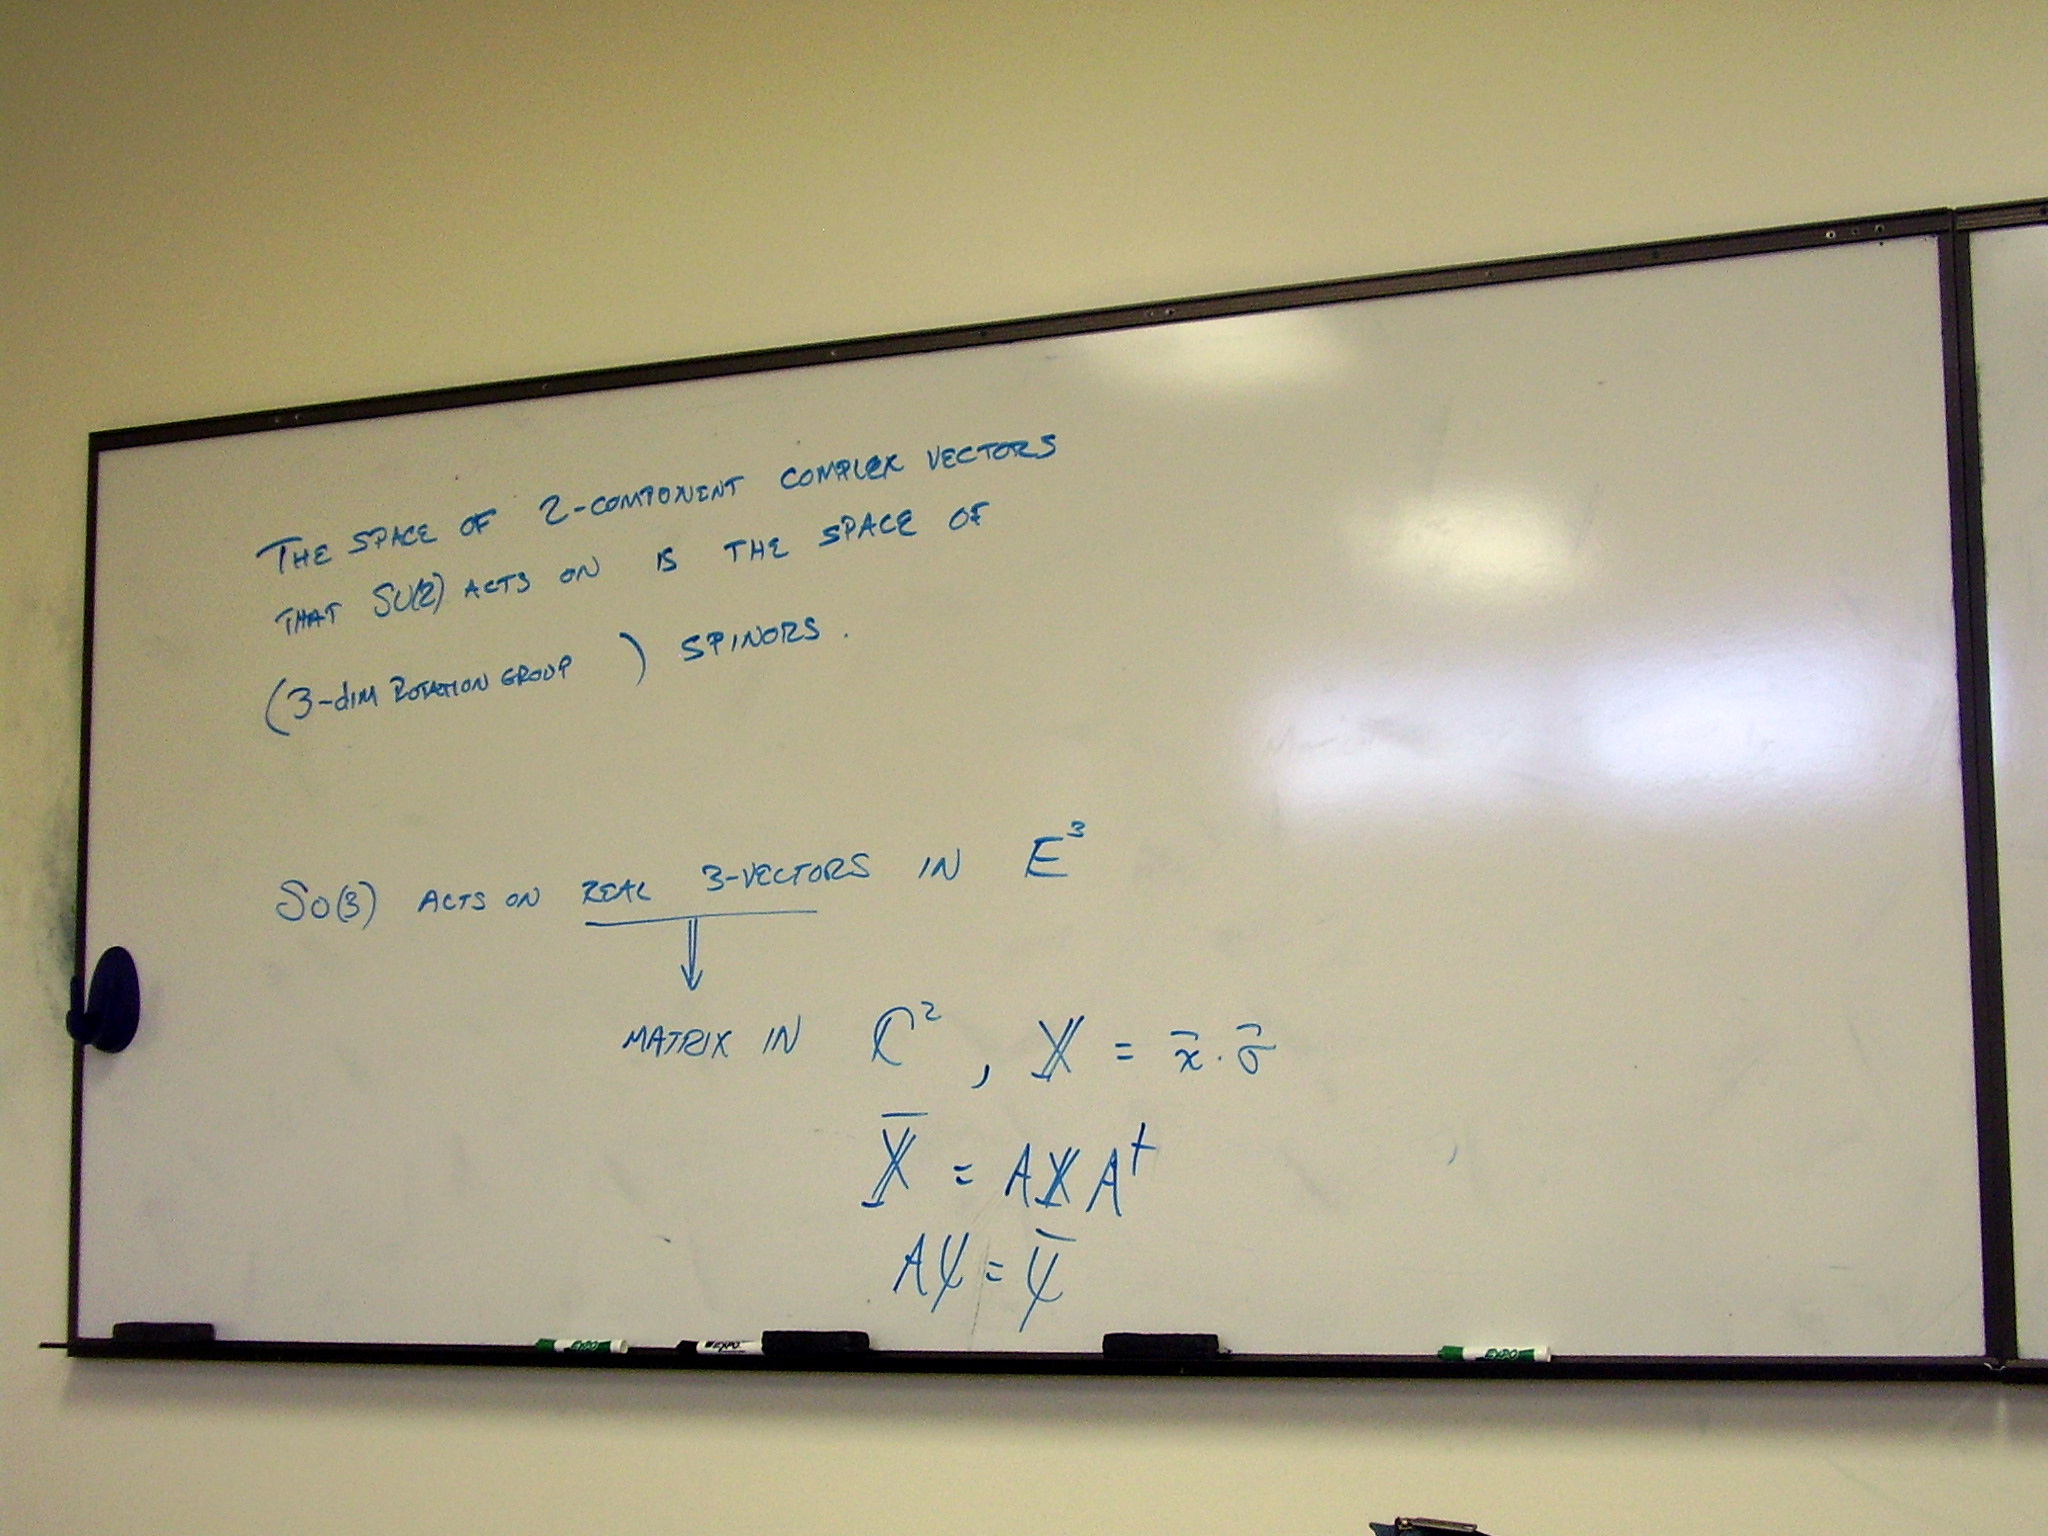 THE SPACE OF 2-COMPONENT COMPLEX VECTORS
THAT SU(2) ACTS ON IS THE SPACE OF
(3-dIM ROTATION GROUP) SPINORS.
SO(3) ACTS ON REAL 3-VECTORS IN E³
⇓
MATRIX IN ℂ², 𝕏 = x⃗·σ⃗
𝕏̄ = A𝕏A†
Aψ = ψ̄
EXPO EXPO EXPO